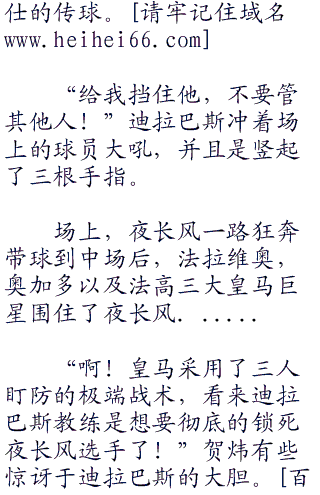 仕的传球。[请牢记住域名
www.heihei66.com]
“给我挡住他，不要管
其他人！”迪拉巴斯冲着场
上的球员大吼，并且是竖起
了三根手指。
场上，夜长风一路狂奔
带球到中场后，法拉维奥，
奥加多以及法高三大皇马巨
星围住了夜长风．．．．．．
“啊！皇马采用了三人
盯防的极端战术，看来迪拉
巴斯教练是想要彻底的锁死
夜长风选手了！”贺炜有些
惊讶于迪拉巴斯的大胆。[百